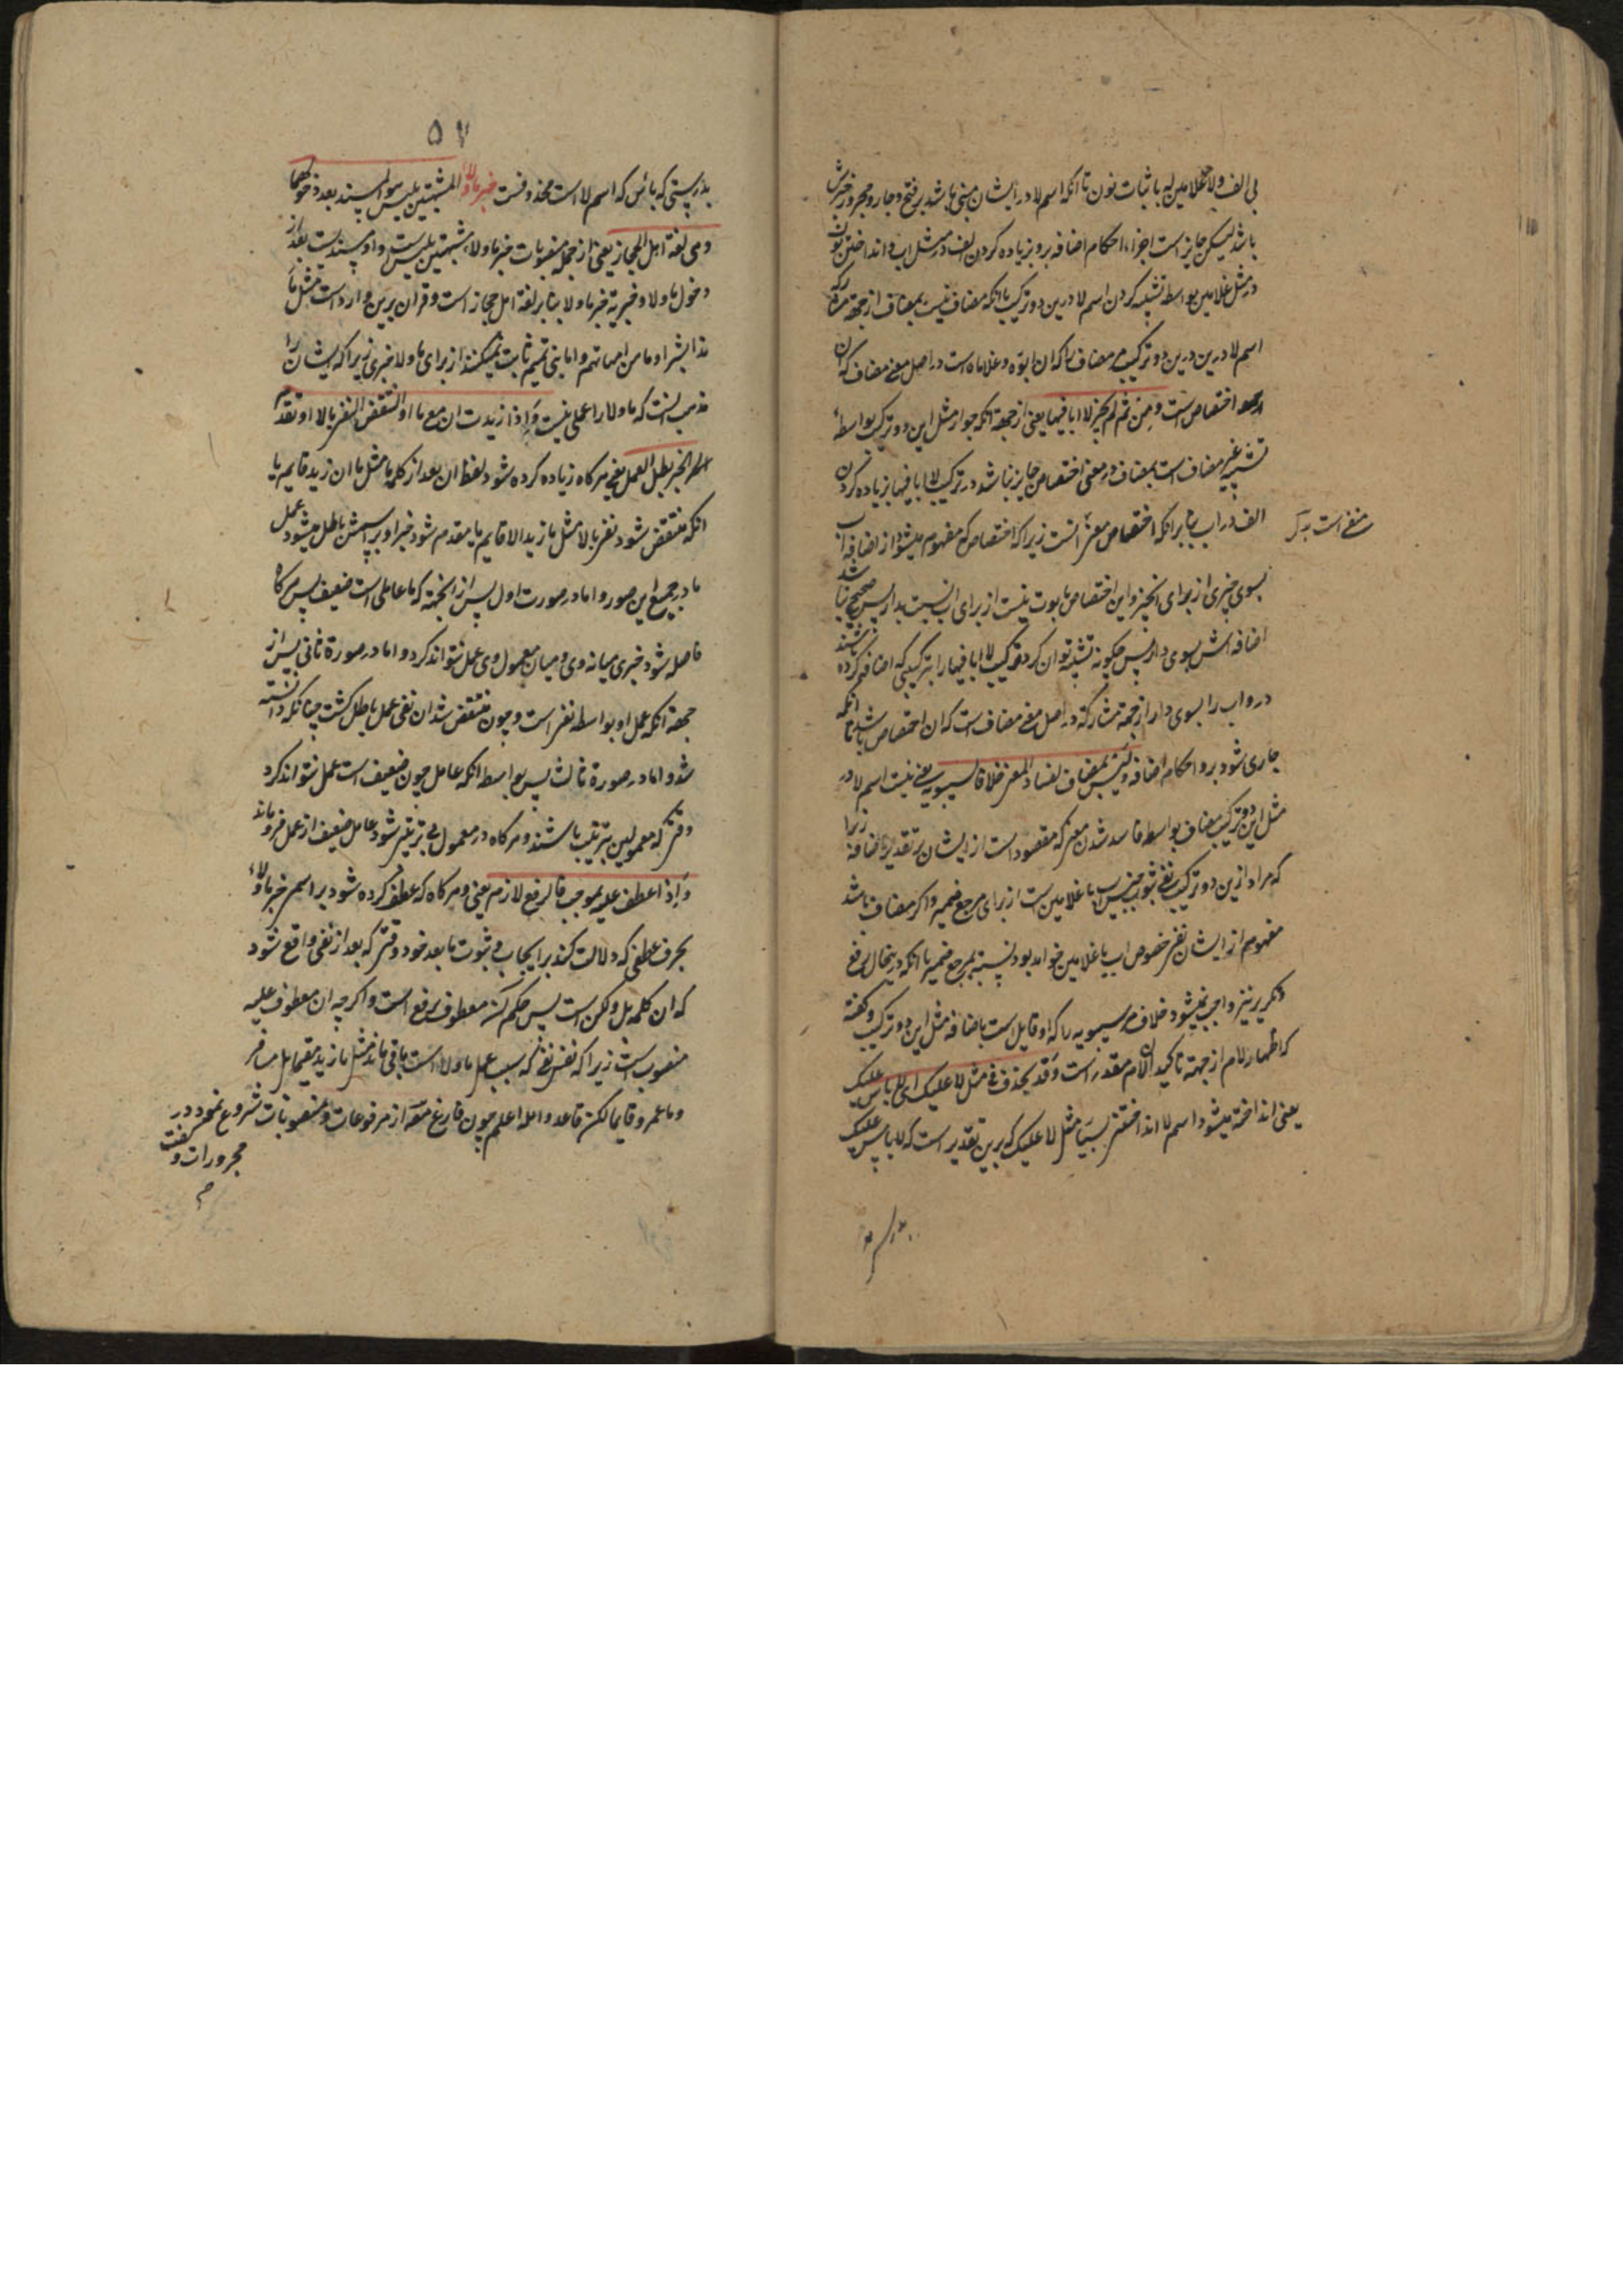 بی الف ولا غلامین له باثبات نون تا انکه اسم لا در ایشان مبنی باشد بر فتح و جار و مجرور خبرش
باشد لیکن جایز است اجراء احکام اضافه برو بزیاده کردن الف در مثل اب و انداختن نون
در مثل غلامین بواسطه تشبیه کردن اسم لا درین دو ترکیب با انکه مضاف نیست بمضاف از جهة مشارکه
اسم لا درین درین دو ترکیب مر مضاف را که ان ابوه و غلاماه است در اصل معنی مضاف که ان
اختصاص است ومن ثم لم یجز لا ابا فیها یعنی از جهة انکه جواز مثل این دو ترکیب بواسطهٔ
تشبیه غیر مضاف است بمضاف در معنی اختصاص جایز نباشد در ترکیب لا ابا فیها زیاده کردن
الف در اب بنابر انکه اختصاص معنی انست زیرا که اختصاص که مفهوم میشود از اضافه اب
منفی است به
بسوی چیزی از برای انچیز و این اختصاص ثبوت نیست از برای اب نسبت بدار پس صحیح نباشد
اضافه اش بسوی دار پس چکونه تشبیه توان کرد ترکیب لا ابا فیها را بترکیبی که اضافه کرده باشند
درو اب را بسوی دار از جهة مشارکة در اصل معنی مضاف است که ان اختصاص باشد تا انکه
جاری شود برو احکام اضافه ولیس بمضاف لفساد المعنی خلافا لسیبویه یعنی نیست اسم لا در
مثل این دو ترکیب مضاف بواسطه فاسد شدن معنی که مقصود است از ایشان بر تقدیر اضافة زیرا
که مراد ازین دو ترکیب نفی ثبوت جنس اب یا غلامین است از برای مرجع ضمیر و اکر مضاف باشد
مفهوم از ایشان نفی خصوص اب یا غلامین خواهد بود نسبة بمرجع ضمیر با انکه درینحال رفع
و تکریر نیز واجب نمیشود خلاف مر سیبویه را که او قایل است باضافه مثل این دو ترکیب و کفته
که اظهار لام از جهة تاکید ان لام مقدر است وقد یحذف فی مثل لا علیک ای لا باس علیک
یعنی انداخته میشود اسم لا انداختنی بسیار مثل لا علیک که برین تقدیر است که لا باس علیک
۵۷
بدرستی که بائس که اسم لا است محذوفست خبر ما ولا المشبهتین بلیس هو المسند بعد دخولهما
وهی لغة اهل الحجاز یعنی از جمله منصوبات خبر ما ولاء مشبهتین بلیس است و او مسندیست بعد از
دخول ما ولا و خبریة خبر ما ولا بنابر لغة اهل حجاز است و قران برین وارد است مثل ما
هذا بشرا و ما هن امهاتهم و اما بنی تمیم ثابت نمیکنند از برای ما ولا خبری زیرا که ایشان را
مذهب انست که ما ولا را عملی نیست واذا زیدت ان مع ما او انتقض النفی بالا او تقدم
الخبر بطل العمل یعنی هر کاه زیاده کرده شود لفظ ان بعد از کلمه ما مثل ما ان زید قایم یا
انکه منتقض شود نفی بالا مثل ما زید الا قایم یا مقدم شود خبر او بر اسمش باطل میشود عمل
ما در جمیع این صور و اما در صورت اول پس از انجهة که ما عاملی است ضعیف پس هر کاه
فاصله شود چیزی میانه وی و میان معمول وی عمل نتواند کرد و اما در صورة ثانی پس از
جهة انکه عمل او بواسطه نفی است و چون منتقض شد ان نفی عمل باطل کشت چنانکه دانسته
شد و اما در صورة ثالث پس بواسطه انکه عامل چون ضعیف است عمل نتواند کرد
وقتی که معمولین بترتیب باشند و هر کاه در معمول بی ترتیبی شود عامل ضعیف از عمل فرو ماند
واذا عطف علیه بموجب فالرفع لازم یعنی و هر کاه که عطف کرده شود بر اسم خبر ما ولاء
بحرف عطفی که دلالت کند بر ایجاب و ثبوت ما بعد خود وقتی که بعد از نفی واقع شود
که ان کلمه بل و لکن است پس حکم ان معطوف رفع است و اکر چه ان معطوف علیه
منصوب است زیرا که نفس نفی که سبب عمل ما ولا است باقی نماند مثل ما زید مقیما بل مسافر
و ما عمرو قایما لکن قاعد والله اعلم چون فارغ از مرفوعات و منصوبات شروع نمود در
مجرورات و کفت